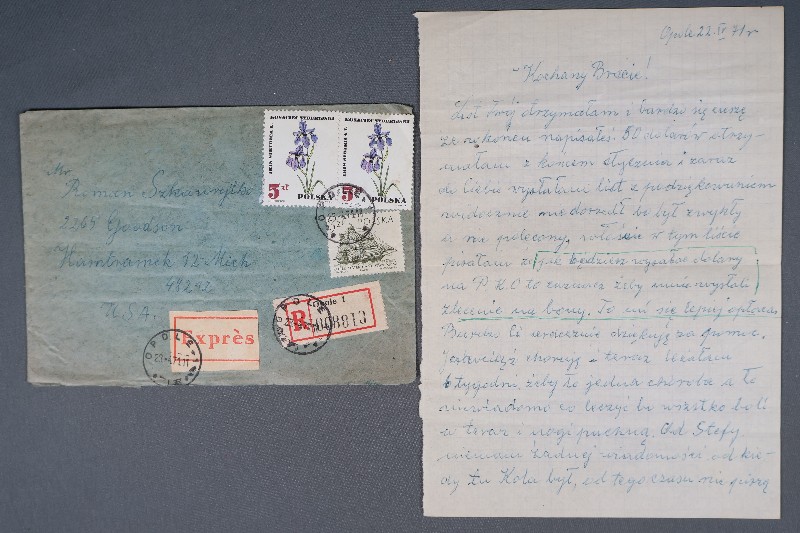 Mr.
Roman
2265 Goodson
Hamtramck 12 Mich
48212
U.S.A.
5 zł
POLSKA
5 zł
POLSKA
POLSKA
OPOLE 1
Exprès
R
Opole 1
OPOLE 1
Opole 22 IV 71 r
Kochany Bracie!
List twój otrzymałam i bardzo się cieszę
że na końcu napisałeś 50 dolarów otrzy-
małam z końcem stycznia i zaraz
do Ciebie wysłałam list z podziękowaniem
widocznie nie doszedł bo był zwykły
a nie polecony, w tym liście
pisałam że jak będziesz wysyłać dolary
na P.K.O to zaznacz żeby mnie wysłali
zlecenie na bony. To mi się lepiej opłaca.
Bardzo Ci serdecznie dziękuję za pomoc.
choruję i teraz leżałam
6 tygodni, żeby to jedna choroba a to
niewiadomo co leczyć bo wszystko boli
a teraz i nogi puchną. Od Stefy
niemam żadnej wiadomości od kie-
dy tu Kola był, od tego czasu nie piszą